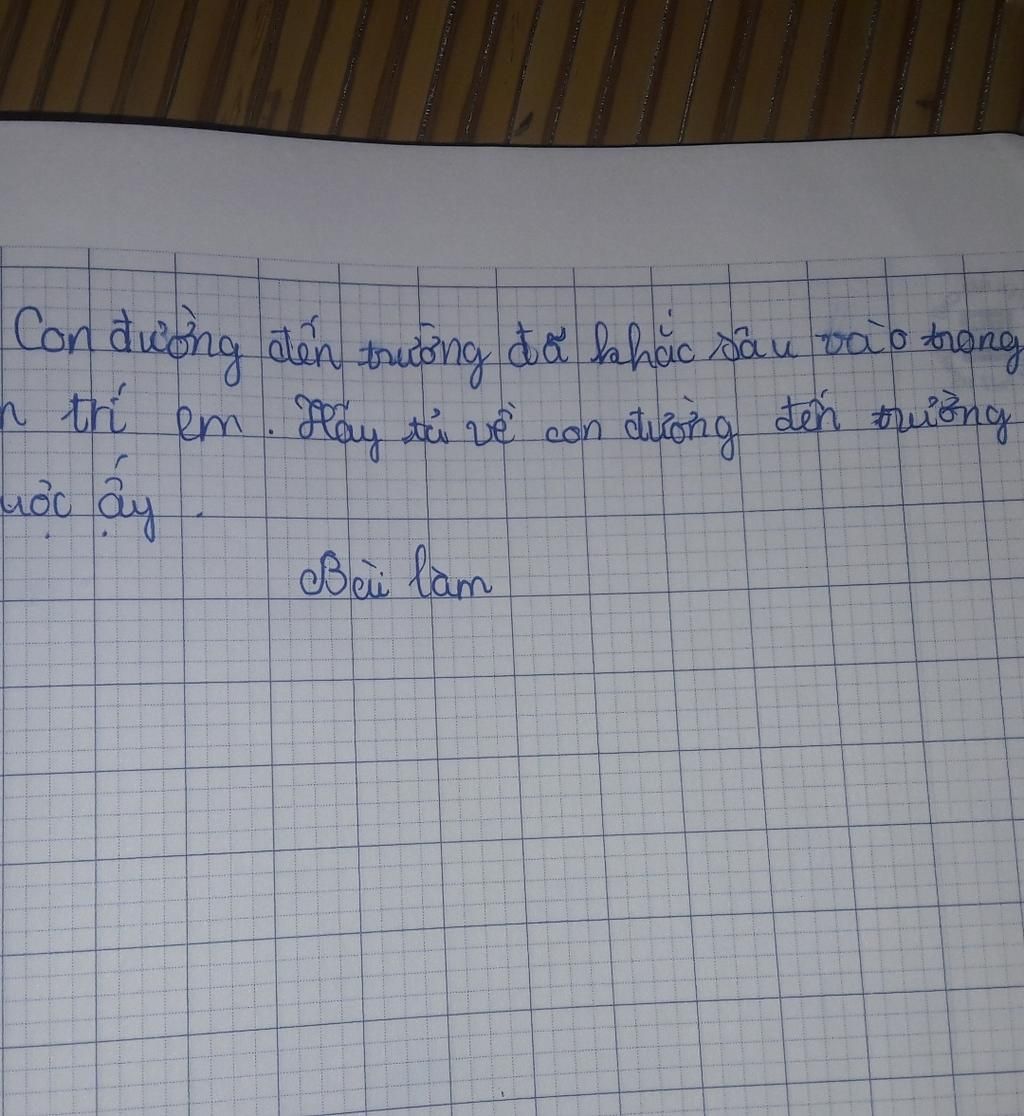 Con đường đến trường đã khắc sâu vào trong
trí em. Hãy tả về con đường đến trường
ấy.
Bài làm